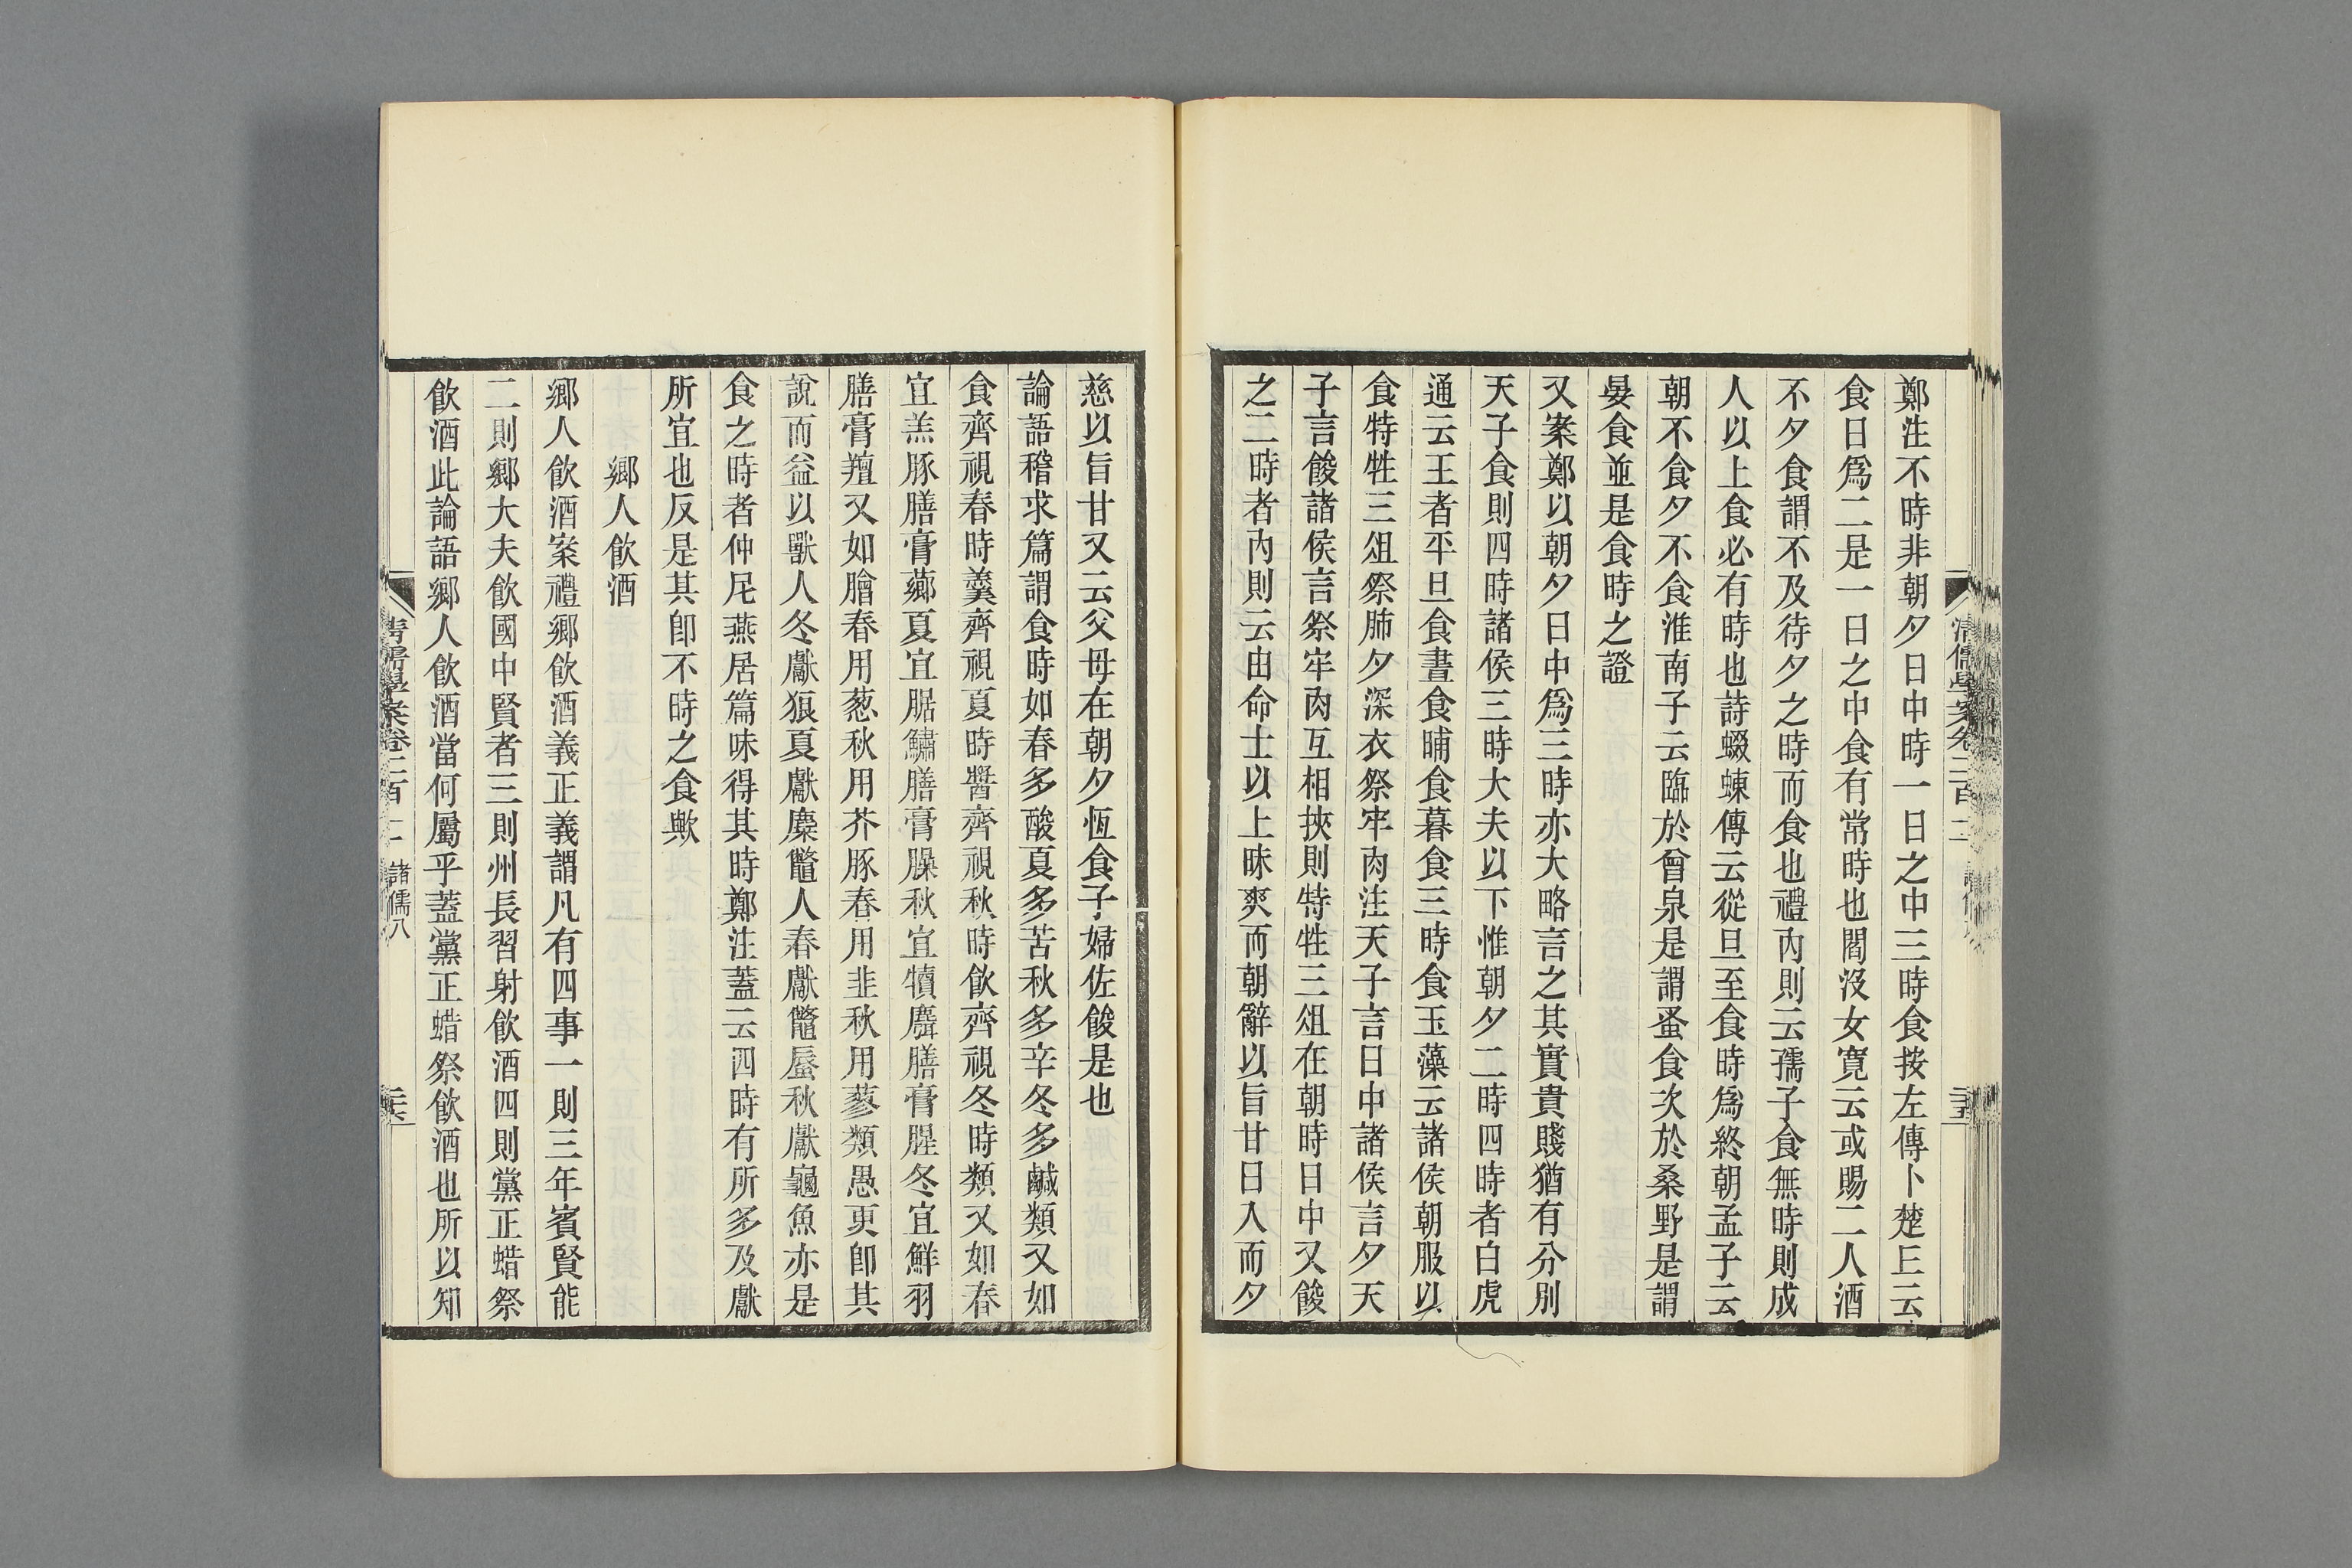 鄭注不時非朝夕日中時一日之中三時食按左傳卜楚丘云
食日爲二是一日之中食有常時也閻沒女寬云或賜二人酒
不夕食謂不及待夕之時而食也禮內則云孺子食無時則成
人以上食必有時也詩蝃蝀傳云從旦至食時爲終朝孟子云
朝不食夕不食淮南子云臨於曾泉是謂蚤食次於桑野是謂
晏食並是食時之證
又案鄭以朝夕日中爲三時亦大略言之其實貴賤猶有分別
天子食則四時諸侯三時大夫以下惟朝夕二時四時者白虎
通云王者平旦食晝食晡食暮食三時食玉藻云諸侯朝服以
食特牲三俎祭肺夕深衣祭牢肉注天子言日中諸侯言夕天
子言餕諸侯言祭牢肉互相挾則特牲三俎在朝時日中又餕
之二時者內則云由命士以上昧爽而朝辭以旨甘日入而夕
慈以旨甘又云父母在朝夕恆食子婦佐餕是也
論語稽求篇謂食時如春多酸夏多苦秋多辛冬多鹹類又如
食齊視春時羹齊視夏時醬齊視秋時飲齊視冬時類又如春
宜羔豚膳膏薌夏宜腒鱐膳膏臊秋宜犢麛膳膏腥冬宜鮮羽
膳膏羶又如膾春用葱秋用芥豚春用韭秋用蓼類愚更卽其
說而益以獸人冬獻狼夏獻麋鼈人春獻鼈蜃秋獻龜魚亦是
食之時者仲尼燕居篇味得其時鄭注蓋云四時有所多及獻
所宜也反是其卽不時之食歟
鄉人飲酒
鄉人飲酒案禮鄉飲酒義正義謂凡有四事一則三年賓賢能
二則鄉大夫飲國中賢者三則州長習射飲酒四則黨正蜡祭
飲酒此論語鄉人飲酒當何屬乎蓋黨正蜡祭飲酒也所以知
清儒學案卷二百二 諸儒八